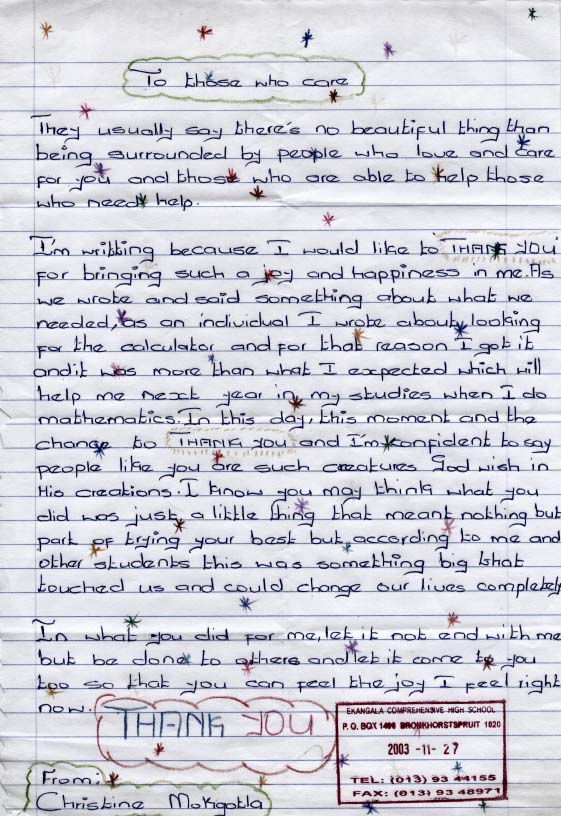 To those who care
They usually say there's no beautiful thing than
being surrounded by people who love and care
for you and those who are able to help those
who need help.
I'm writting because I would like to "THANK YOU"
for bringing such a joy and happiness in me. As
we wrote and said something about what we
needed, as an individual I wrote about looking
for the calculator and for that reason I got it
and it was more than what I expected which will
help me next year in my studies when I do
mathematics. In this day, this moment and the
change to THANK YOU and I'm confident to say
people like you are such creatures God wish in
His creations. I know you may think what you
did was just a little thing that meant nothing but
part of trying your best but according to me and
other students this was something big that
touched us and could change our lives completely
In what you did for me, let it not end with me
but be done to others and let it come to you
too so that you can feel the joy I feel right
now.
THANK YOU
EKANGALA COMPREHENSIVE HIGH SCHOOL
P.O. BOX 1400 BRONKHORSTSPRUIT 1020
2003 -11- 27
TEL: (013) 93 44155
FAX: (013) 93 48971
From:
Christine Mokgotla